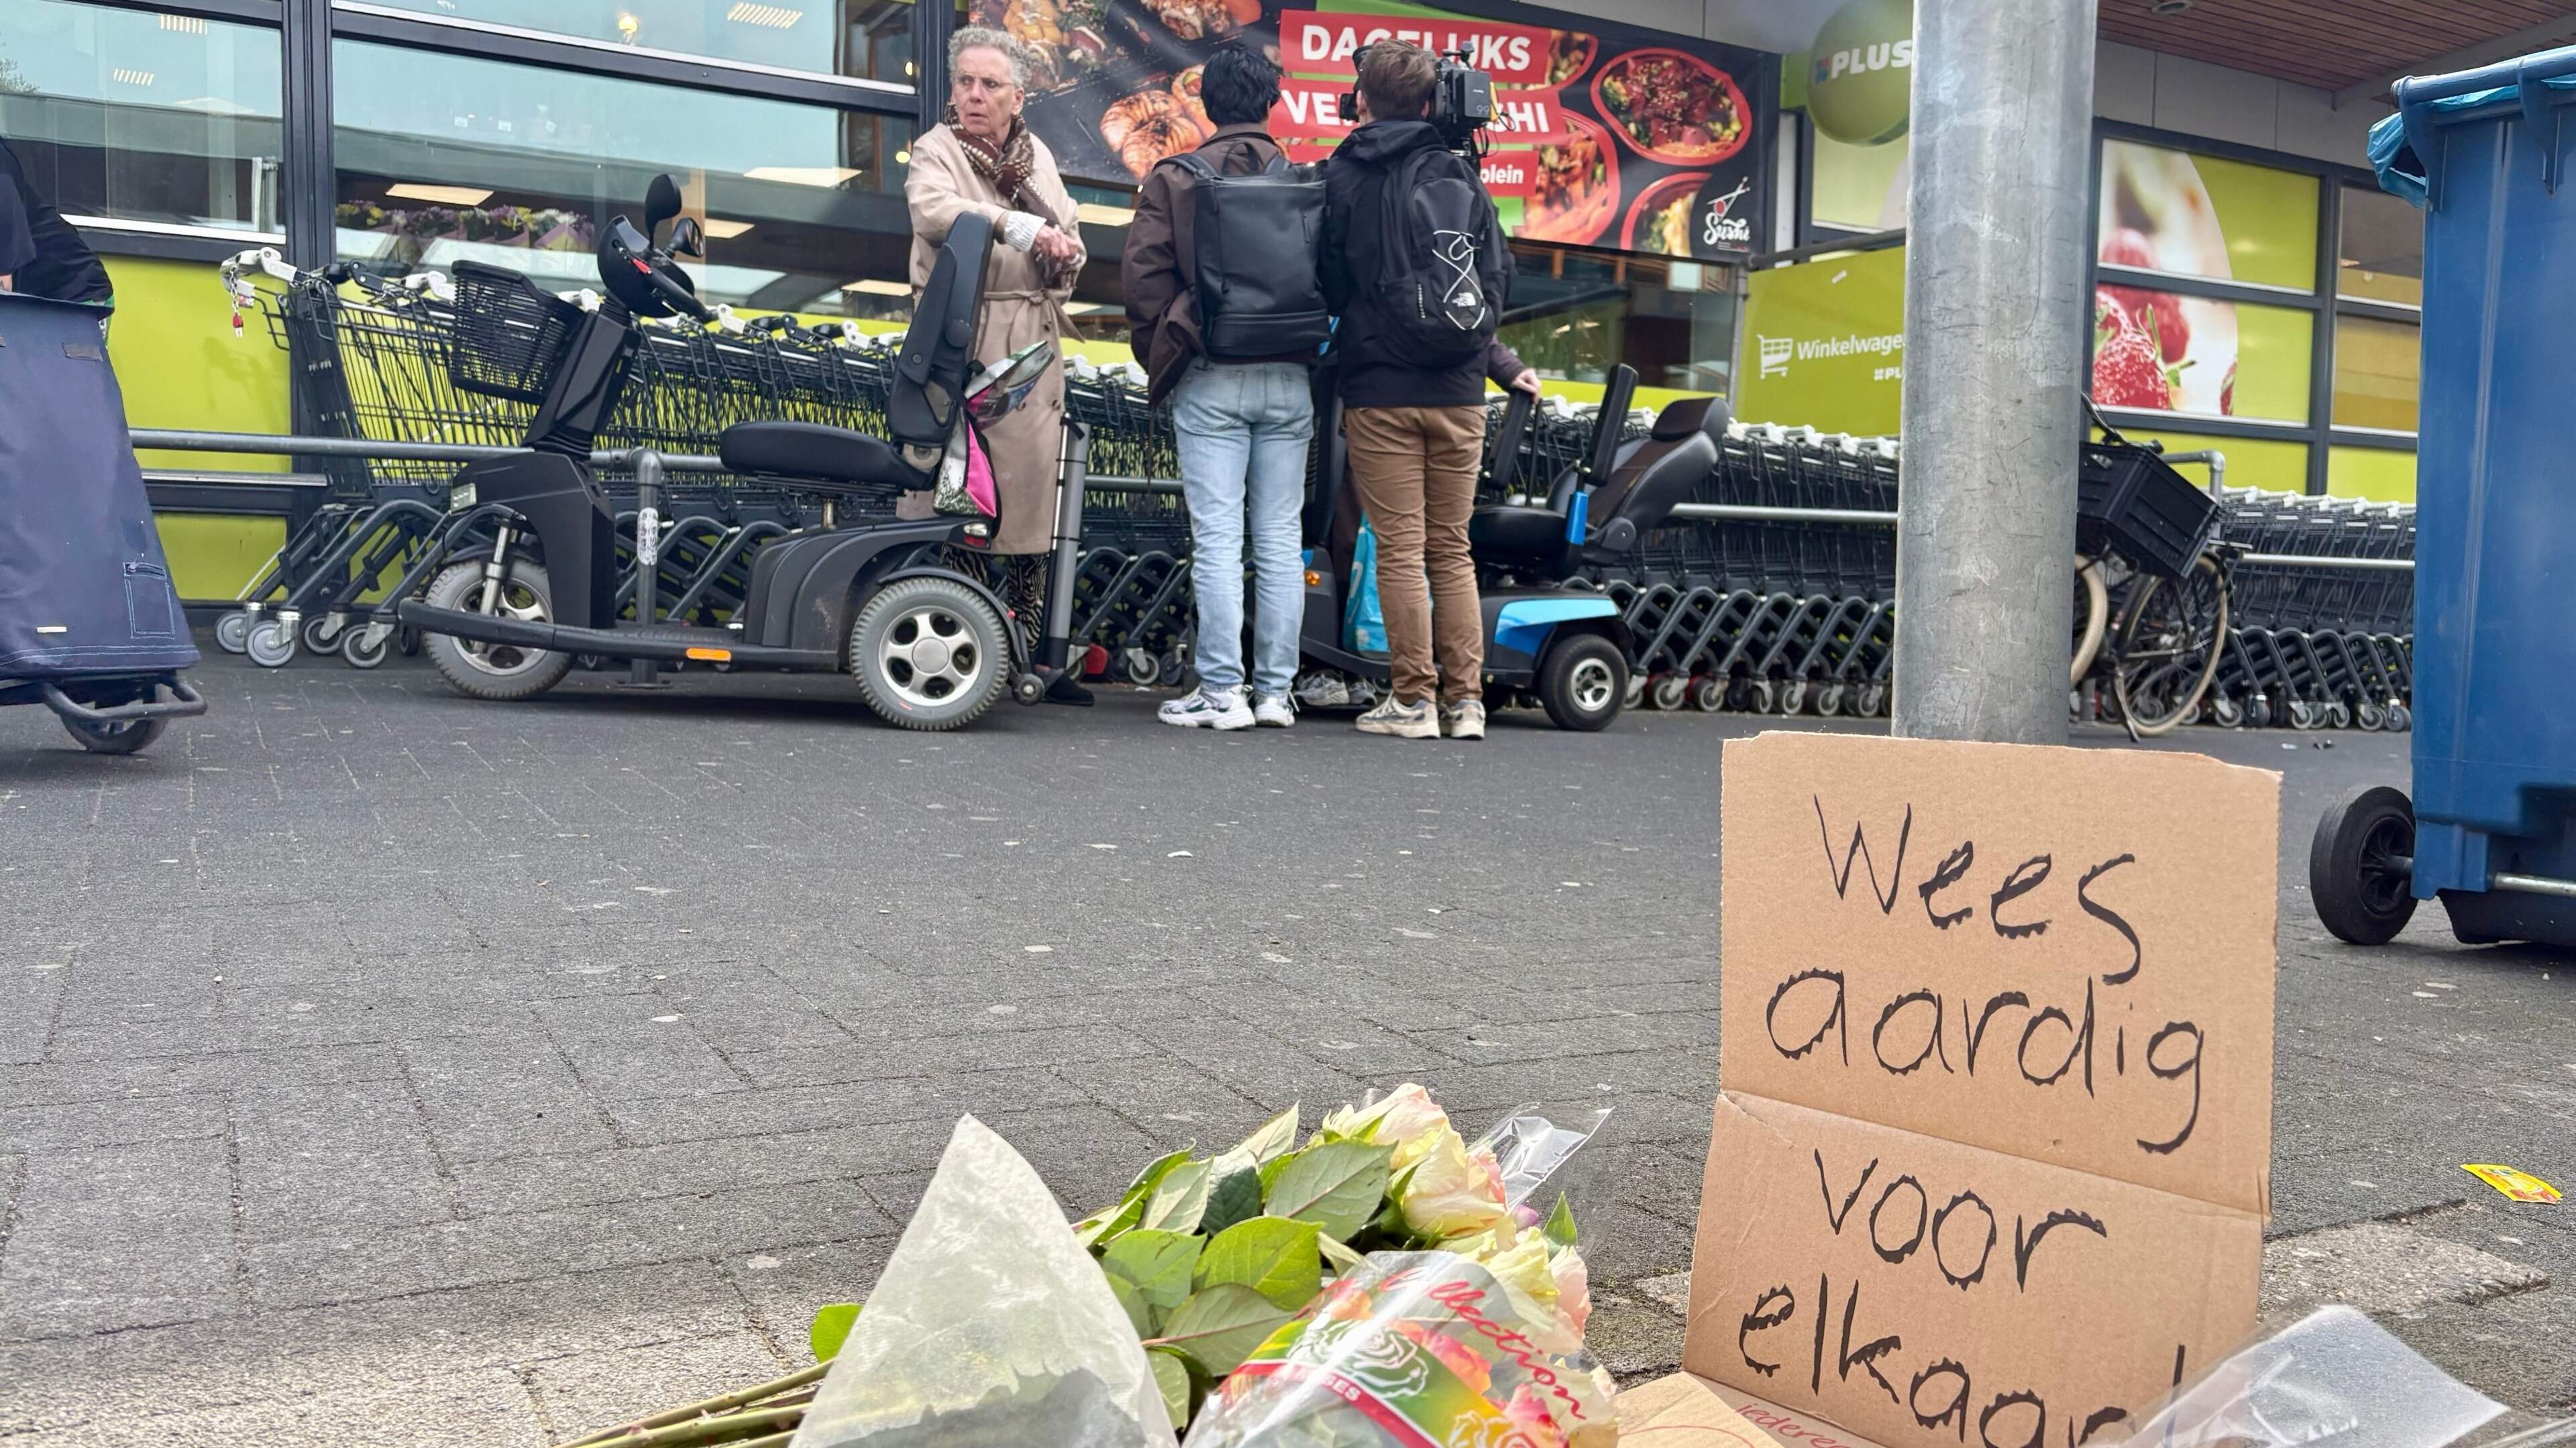 DAGELIJKS
Sushi
PLUS
Winkelwage
#PL
Wees
aardig
voor
elkaar!
Collection
iedere